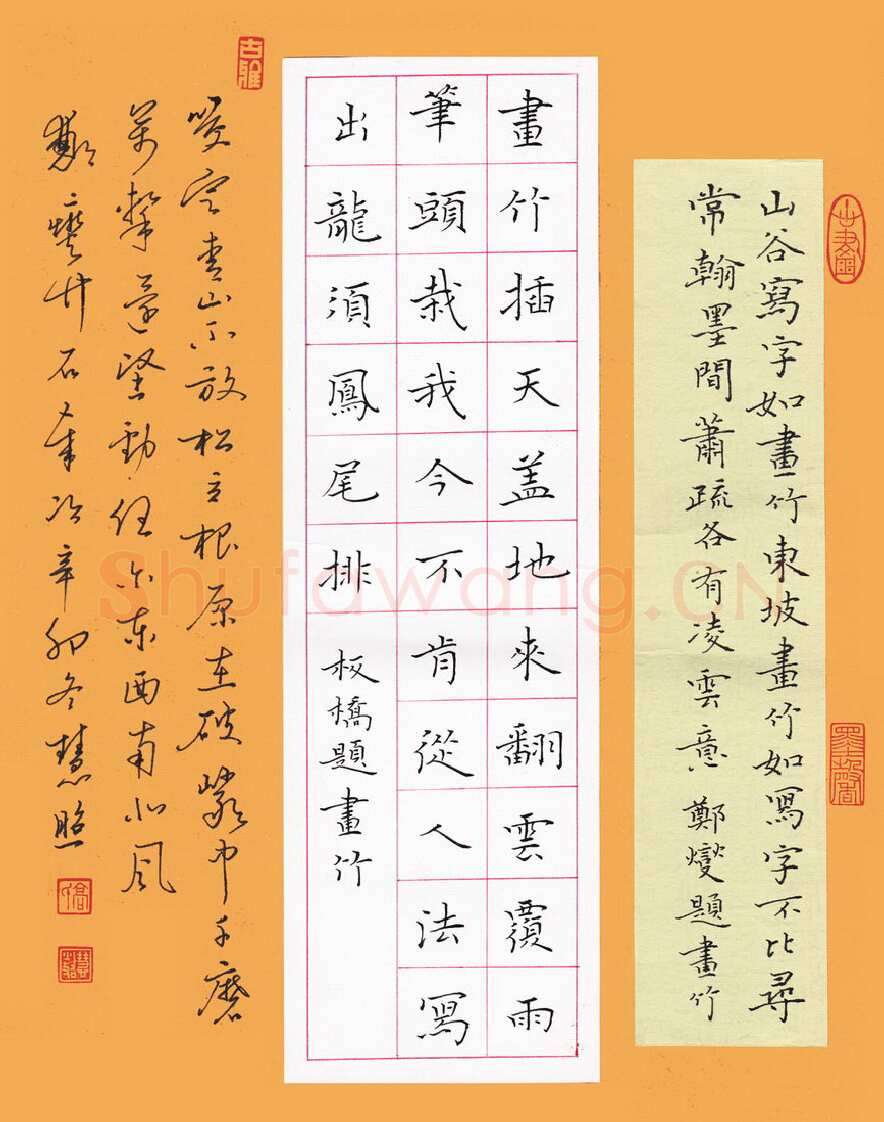 山谷寫字如畫竹東坡畫竹如冩字不比尋
常翰墨間蕭疏各有凌雲意 鄭燮題畫竹
畫竹插天盖地來翻雲覆雨
筆頭栽我今不肯從人法冩
出龍須鳳尾排 板橋題畫竹
古雅
咬定青山不放松立根原在破巖中千磨
萬擊還堅勁任尔東西南北风
鄭燮竹石年次辛卯冬慧照
Shufawang.CN